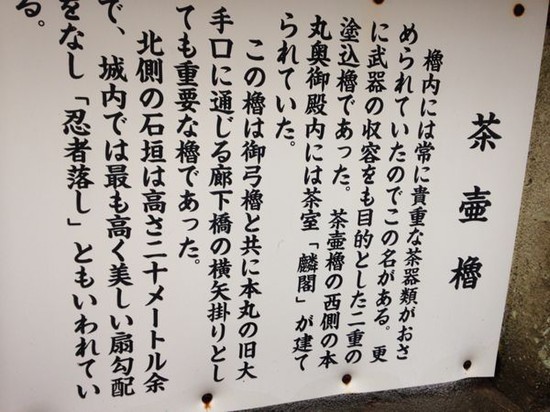 茶壷櫓
櫓内には常に貴重な茶器類がおさ
められていたのでこの名がある。更
に武器の収容をも目的とした二重の
塗込櫓であった。茶壷櫓の西側の本
丸奥御殿内には茶室「麟閣」が建て
られていた。
この櫓は御弓櫓と共に本丸の旧大
手口に通じる廊下橋の横矢掛りとし
ても重要な櫓であった。
北側の石垣は高さ二十メートル余
で、城内では最も高く美しい扇勾配
をなし「忍者落し」ともいわれてい
る。